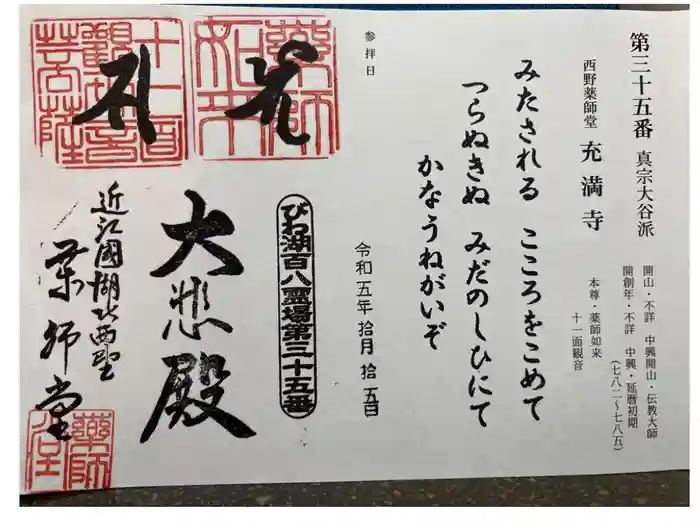 第三十五番 真宗大谷派
西野薬師堂 充満寺
開山・不詳 中興開山・伝教大師
開創年・不詳 中興・延暦初期
(七八二~七八五)
本尊・薬師如来
十一面観音
みたされる こころをこめて
つらぬきぬ みだのしひにて
かなうねがいぞ
参拝日
令和五年 拾月 拾五日
びわ湖百八霊場第三十五番
十一面
觀世音
菩薩
大悲殿
近江國湖北西野
薬師堂
薬師